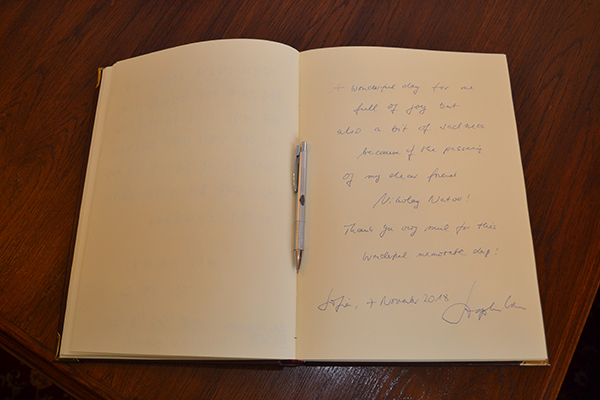 A wonderful day for me
full of joy but
also a bit of sadness
because of the passing
of my dear friend
Nikolay
Thank you very much for this
wonderful day!
Sofia, 7 November 2018